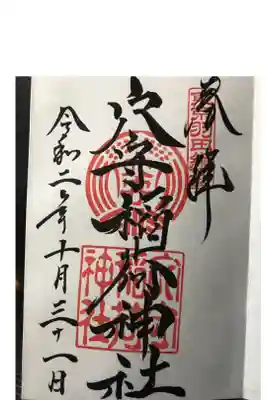 奉拝
穴守稲荷神社
令和二年十月三十一日
穴守稲荷神社